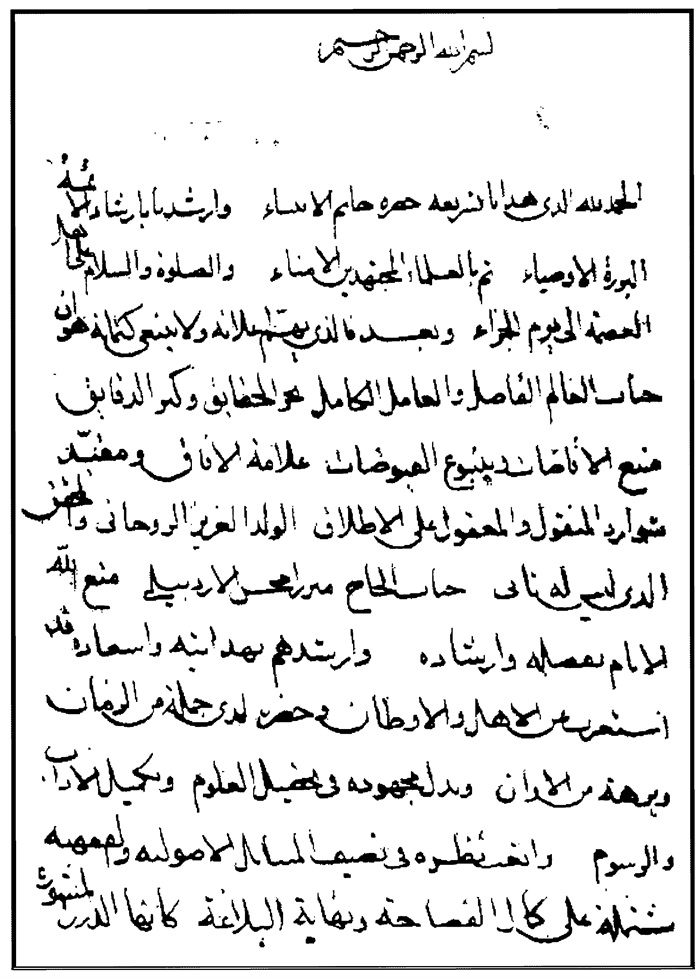 بسم الله الرحمن الرحيم
الحمد لله الذي هدانا بشريعة حضرة خاتم الانبياء وارشدنا بارشاد الائمة
البررة الاوصياء ثم بالعلماء المجتهدين الامناء والصلوة والسلام على
العصمة الى يوم الجزاء وبعد فالذي يهم اعلانه ولا ينبغي كتمانه هو ان
جناب العالم الفاضل والعامل الكامل بحر الحقايق وكنز الدقايق
منبع الافاضات وينبوع الفيوضات علامة الافاق ومقيد
شوارد المنقول والمعقول على الاطلاق الولد العزيز الروحاني والمحقق
الذي ليس له ثاني جناب الحاج ميرزا محسن الاردبيلي متع الله
الانام بفضله وارشاده وارشدهم بهدايته واسعاده قد
استغرب عن الاهل والاوطان وحضر لدى جملة من الزمان
وبرهة من الاوان وبذل مجهوده في تحصيل العلوم وتكميل الاداب
والرسوم واتعب نظره في تصنيف المسائل الاصولية والفقهية
مشتملة على كمال الفصاحة ونهاية البلاغة كانها الدرر المنثورة